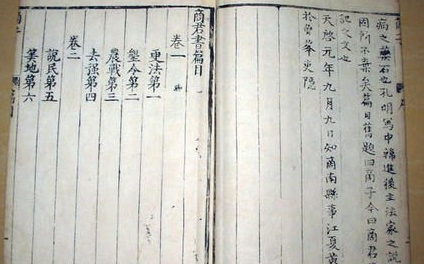 病之藥石也孔明寫申韓進後主法家之說
固所不棄矣篇目舊題曰商子今曰商君
記文文也
天啓元年九月九日知商南縣事江夏黃
於曾峯吏隱
商君書篇目
卷一
更法第一
墾令第二
農戰第三
去彊第四
卷二
說民第五
筭地第六